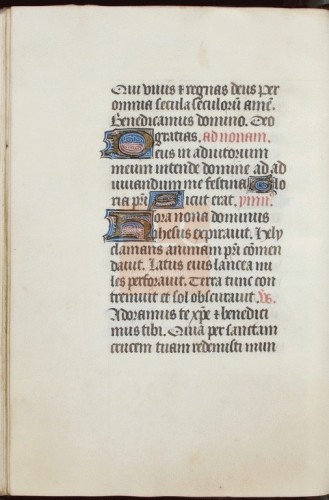 Qui vivis ⁊ regnas deus per
omnia secula seculorū amē.
Benedicamus domino. Deo
gratias. ad nonam.
Deus in adiutorium
meum intende domine ad ad
iuuandum me festina Glo
ria pr̄i Sicut erat. ymn̄.
Hora nona dominus
ihesus expirauit. Hely
clamans animam pr̄i comen
dauit. Latus eius lancea mi
les perforauit. Terra tunc con
tremuit et sol obscurauit. v̄s.
Adoramus te xp̄e ⁊ benedici
mus tibi. Quia per sanctam
crucem tuam redemisti mun